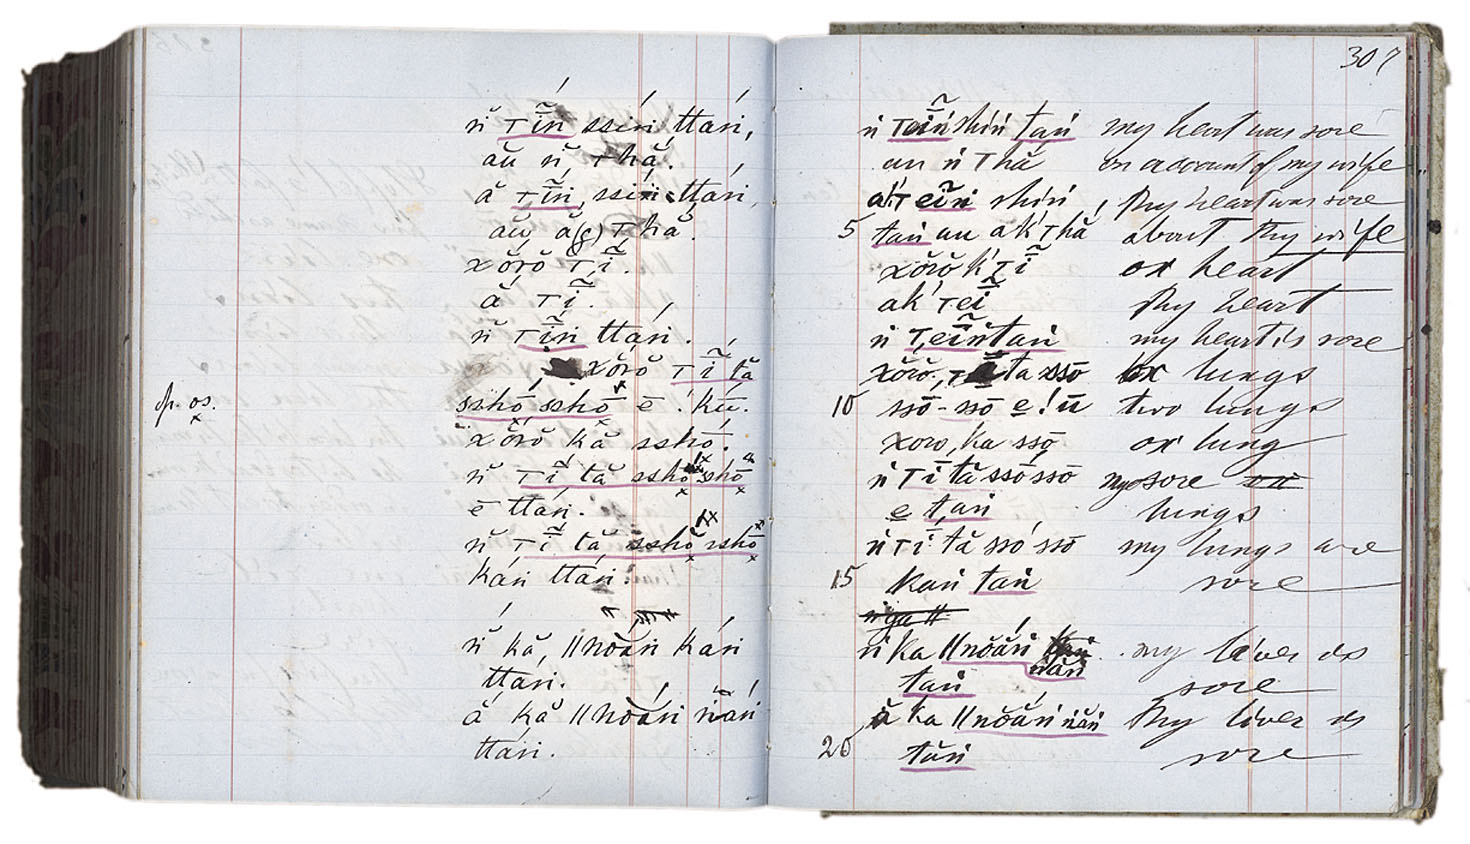 n̆ ⊤ĩń ssiń ttáń,
aŭ n̆ ⊤hă.
ă ⊤ĩń, ssiń ttáń,
aŭ ă(g) ⊤hă.
xŏrŏ ⊤ĩ.
ă ⊤ĩ.
n̆ ⊤ĩń ttáń.
xŏrŏ ⊤ĩ tă
p. os.
sshó sshō ē !kū.
xŏrŏ kă sshō.
n̆ ⊤ĩ tă sshō sshō
ē ttáń.
n̆ ⊤ĩ tă sshō sshō
káń ttáń.
n̆ kă ǁnŏáń káń
ttáń.
ă kă ǁnŏáń n̆áń
ttáń.
307
ń ⊤eĩń shiń tań my heart was sore
au ń ⊤hă on account of my wife
ak ⊤eĩń shiń, thy heart was sore
5 tań au ak ⊤hă about thy wife
xŏrŏ k ⊤ĩ ox heart
ak ⊤eĩ thy heart
ń ⊤eĩń tań my heart is sore
xŏrŏ, ta ssō ox lungs
10 ssō-ssō e !ū two lungs
xoro, ka ssō ox lung
ń ⊤ĩ tă ssó ssō my sore
e tań lungs
ń ⊤ĩ tă ssó ssō my lungs are
15 kań tań sore
ń ka ǁnŏáń năń my liver is
tań sore
ă ka ǁnŏáń năń thy liver is
20 tăń sore